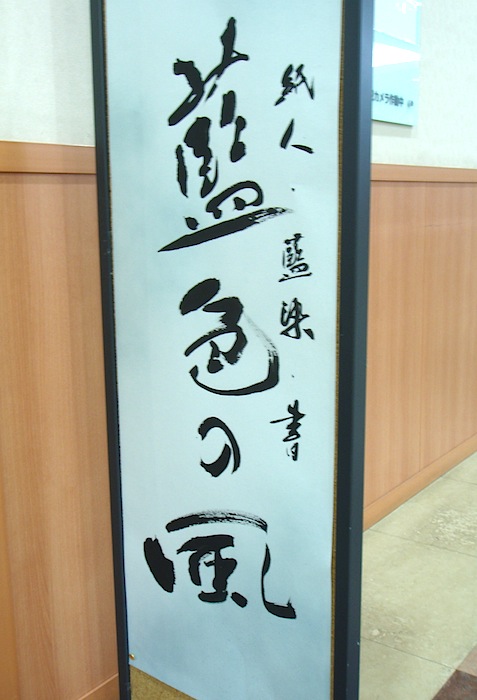 紙人・藍染・書
藍色の風
カメラ作動中